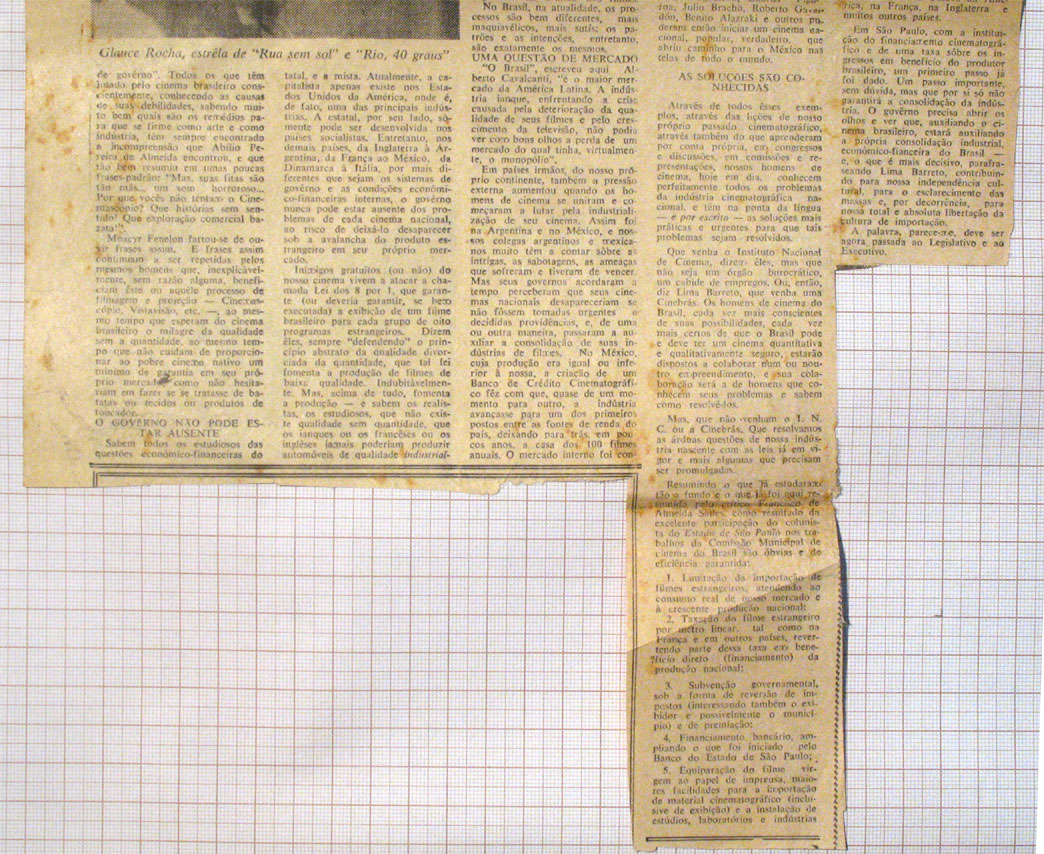 Glauce Rocha, estrêla de "Rua sem sol" e "Rio, 40 graus"
de govêrno". Todos os que têm
lutado pelo cinema brasileiro cons-
cientemente, conhecendo as causas
de suas debilidades, sabendo mui-
to bem quais são os remédios pa-
ra que se firme como arte e como
indústria, têm sempre encontrado
a incompreensão que Abílio Pe-
reira de Almeida encontrou, e que
tão bem resumiu em umas poucas
frases-padrão: "Mas, suas fitas são
tão más... um som horroroso...
Por que vocês não tentam o Cine-
mascópio? Que histórias sem sen-
tido! Que exploração comercial ba-
rata!".
Moacyr Fenelon fartou-se de ou-
vir frases assim. E frases assim
continuam a ser repetidas pelos
mesmos homens que, inexplicável-
mente, sem razão alguma, benefi-
ciam êste ou aquêle processo de
filmagem e projeção — Cinemas-
cópio, Vistavisão, etc. —, ao mes-
mo tempo que esperam do cinema
brasileiro o milagre da qualidade
sem a quantidade, ao mesmo tem-
po que não cuidam de proporcio-
nar ao pobre cinema nativo um
mínimo de garantia em seu pró-
prio mercado, como não hesita-
riam em fazer se se tratasse de ba-
tatas ou tecidos ou produtos de
toucador.
O GOVÊRNO NÃO PODE ES-
TAR AUSENTE
Sabem todos os estudiosos das
questões econômico-financeiras do
tatal, e a mista. Atualmente, a ca-
pitalista apenas existe nos Esta-
dos Unidos da América, onde é,
de fato, uma das principais indús-
trias. A estatal, por seu lado, sò-
mente pode ser desenvolvida nos
países socialistas. Entretanto, nos
demais países, da Inglaterra à Ar-
gentina, da França ao México, da
Dinamarca à Itália, por mais di-
ferentes que sejam os sistemas de
govêrno e as condições econômi-
co-financeiras internas, o govêrno
nunca pode estar ausente dos pro-
blemas de cada cinema nacional,
ao risco de deixá-lo desaparecer
sob a avalancha do produto es-
trangeiro em seu próprio mer-
cado.
Inimigos gratuitos (ou não) do
nosso cinema vivem a atacar a cha-
mada Lei dos 8 por 1, que garan-
te (ou deveria garantir, se bem
executada) a exibição de um filme
brasileiro para cada grupo de oito
programas estrangeiros. Dizem
êles, sempre "defendendo" o prin-
cípio abstrato da qualidade divor-
ciada da quantidade, que tal lei
fomenta a produção de filmes de
baixa qualidade. Indubitàvelmen-
te. Mas, acima de tudo, fomenta
a produção — e sabem os realis-
tas, os estudiosos, que não exis-
te qualidade sem quantidade, que
os ianques ou os franceses ou os
inglêses jamais poderiam produzir
automóveis de qualidade industrial-
No Brasil, na atualidade, os pro-
cessos são bem diferentes, mais
maquiavélicos, mais sutis; os pa-
trões e as intenções, entretanto,
são exatamente os mesmos.
UMA QUESTÃO DE MERCADO
"O Brasil", escreveu aqui Al-
berto Cavalcanti, "é o maior mer-
cado da América Latina. A indús-
tria ianque, enfrentando a crise
causada pela deterioração da qua-
lidade de seus filmes e pelo cres-
cimento da televisão, não podia
ver com bons olhos a perda de um
mercado do qual tinha, virtualmen-
te, o monopólio".
Em países irmãos, do nosso pró-
prio continente, também a pressão
externa aumentou quando os ho-
mens de cinema se uniram e co-
meçaram a lutar pela industriali-
zação de seu cinema. Assim foi
na Argentina e no México, e nos-
sos colegas argentinos e mexica-
nos muito têm a contar sôbre as
intrigas, as sabotagens, as ameaças
que sofreram e tiveram de vencer.
Mas seus governos acordaram a
tempo perceberam que seus cine-
mas nacionais desapareceriam se
não fôssem tomadas urgentes e
decididas providências, e, de uma
ou outra maneira, passaram a au-
xiliar a consolidação de suas in-
dústrias de filmes. No México,
cuja produção era igual ou infe-
rior à nossa, a criação de um
Banco de Crédito Cinematográfi-
co fêz com que, quase de um mo-
mento para outro, a indústria
avançasse para um dos primeiros
postos entre as fontes de renda do
país, deixando para trás, em pou-
cos anos, a casa dos 100 filmes
anuais. O mercado interno foi con-
roa, Julio Bracho, Roberto Gaval-
dón, Benito Alazraki e outros pu-
deram então iniciar um cinema na-
cional, popular, verdadeiro, que
abriu caminho para o México nas
telas de todo o mundo.
AS SOLUÇÕES SÃO CO-
NHECIDAS
Através de todos êsses exem-
plos, através das lições de nosso
próprio passado cinematográfico,
através também do que aprenderam
por conta própria, em congressos
e discussões, em comissões e re-
presentações, nossos homens de
cinema, hoje em dia, conhecem
perfeitamente todos os problemas
da indústria cinematográfica na-
cional, e têm na ponta da língua
— e por escrito — as soluções mais
práticas e urgentes para que tais
problemas sejam resolvidos.
Que venha o Instituto Nacional
de Cinema, dizem êles, mas que
não seja um órgão burocrático,
um cabide de empregos. Ou, então,
diz Lima Barreto, que venha uma
Cinebrás. Os homens de cinema do
Brasil, cada vez mais conscientes
de suas possibilidades, cada vez
mais certos de que o Brasil pode
e deve ter um cinema quantitativa
e qualitativamente seguro, estarão
dispostos a colaborar num ou nou-
tro empreendimento, e sua cola-
boração será a de homens que co-
nhecem seus problemas e sabem
como resolvê-los.
Mas, que não venham o I. N.
C. ou a Cinebrás. Que resolvamos
as árduas questões de nossa indús-
tria nascente com as leis já em vi-
gor e mais algumas que precisam
ser promulgadas.
Resumindo o que já estudaram
tão a fundo e o que já foi aqui re-
sumido pelo crítico Francisco de
Almeida Salles, como resultado da
excelente participação do colunis-
ta do Estado de São Paulo nos tra-
balhos da Comissão Municipal de
cinema do Brasil são óbvias e de
eficiência garantida:
1. Limitação da importação de
filmes estrangeiros, atendendo ao
consumo real de nosso mercado e
à crescente produção nacional;
2. Taxação do filme estrangeiro
por metro linear, tal como na
França e em outros países, rever-
tendo parte dessa taxa em bene-
fício direto (financiamento) da
produção nacional;
3. Subvenção governamental,
sob a forma de reversão de im-
postos (interessando também o exi-
bidor e possivelmente o municí-
pio) e de premiação;
4. Financiamento bancário, am-
pliando o que foi iniciado pelo
Banco do Estado de São Paulo;
5. Equiparação do filme vir-
gem ao papel de imprensa, maio-
res facilidades para a importação
de material cinematográfico (inclu-
sive de exibição) e a instalação de
estúdios, laboratórios e indústrias
rica, na França, na Inglaterra e
muitos outros países.
Em São Paulo, com a institui-
ção do financiamento cinematográ-
fico e de uma taxa sôbre os in-
gressos em benefício do produtor
brasileiro, um primeiro passo já
foi dado. Um passo importante,
sem dúvida, mas que por si só não
garantirá a consolidação da indús-
tria. O govêrno precisa abrir os
olhos e ver que, auxiliando o ci-
nema brasileiro, estará auxiliando
a própria consolidação industrial,
econômico-financeira do Brasil —
e, o que é mais decisivo, parafra-
seando Lima Barreto, contribuin-
do para nossa independência cul-
tural, para o esclarecimento das
massas e, por decorrência, para
nossa total e absoluta libertação da
cultura de importação.
A palavra, parece-me, deve ser
agora, passada ao Legislativo e ao
Executivo.